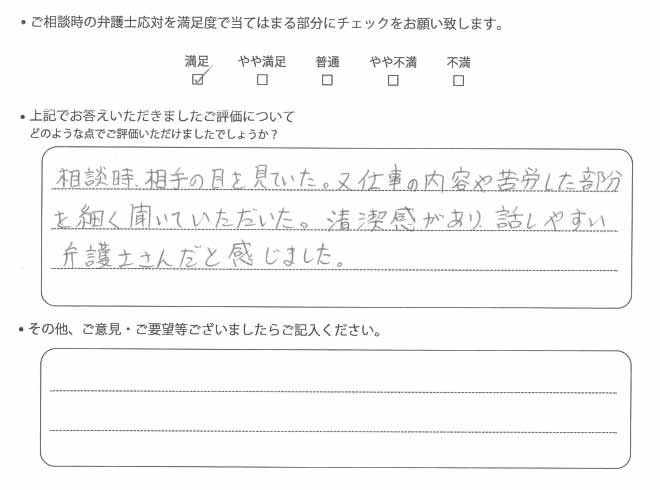 ・ご相談時の弁護士応対を満足度で当てはまる部分にチェックをお願い致します。
満足 やや満足 普通 やや不満 不満
・上記でお答えいただきましたご評価について
どのような点でご評価いただけましたでしょうか？
相談時、相手の目を見ていた。又仕事の内容や苦労した部分
を細く聞いていただいた。清潔感があり、話しやすい
弁護士さんだと感じました。
・その他、ご意見・ご要望等ございましたらご記入ください。